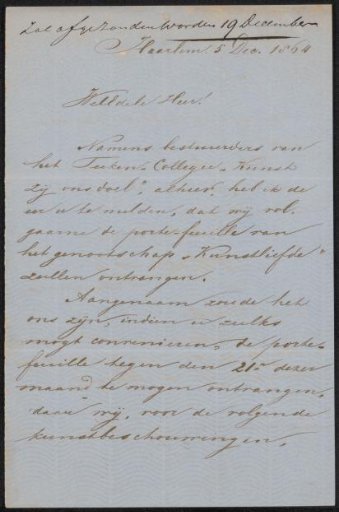 Zal afgezonden worden 19 December
Haarlem 5 Dec. 1864
WelEdele Heer!
Namens bestuurders van
het Teeken-Collegie "Kunst
zij ons doel", alhier, heb ik de
eer u te melden, dat wij vol-
gaarne de porte-feuille van
het genootschap "Kunstliefde"
zullen ontvangen.
Aangenaam zoude het
ons zijn, indien u zulks
mogt convenieren, de porte-
feuille tegen den 21n dezer
maand te mogen ontvangen,
daar wij, voor de volgende
kunstbeschouwingen,